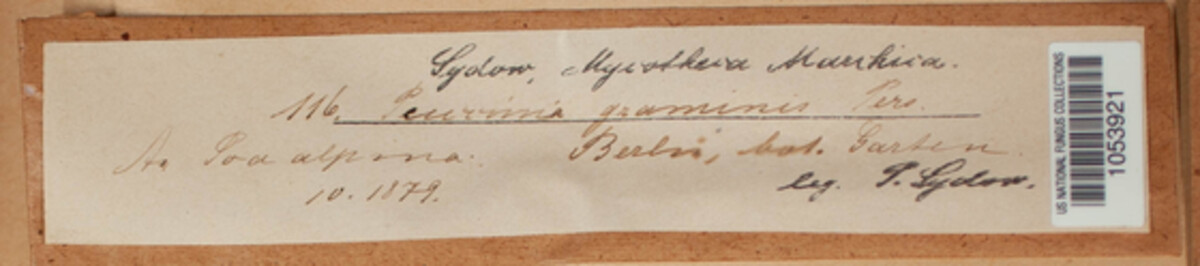 Sydow, Mycotheca Marchica.
116. Puccinia graminis Pers.
An Poa alpina. Berlin, bot. Garten
10. 1879. leg. P. Sydow.
US NATIONAL FUNGUS COLLECTIONS
1053921